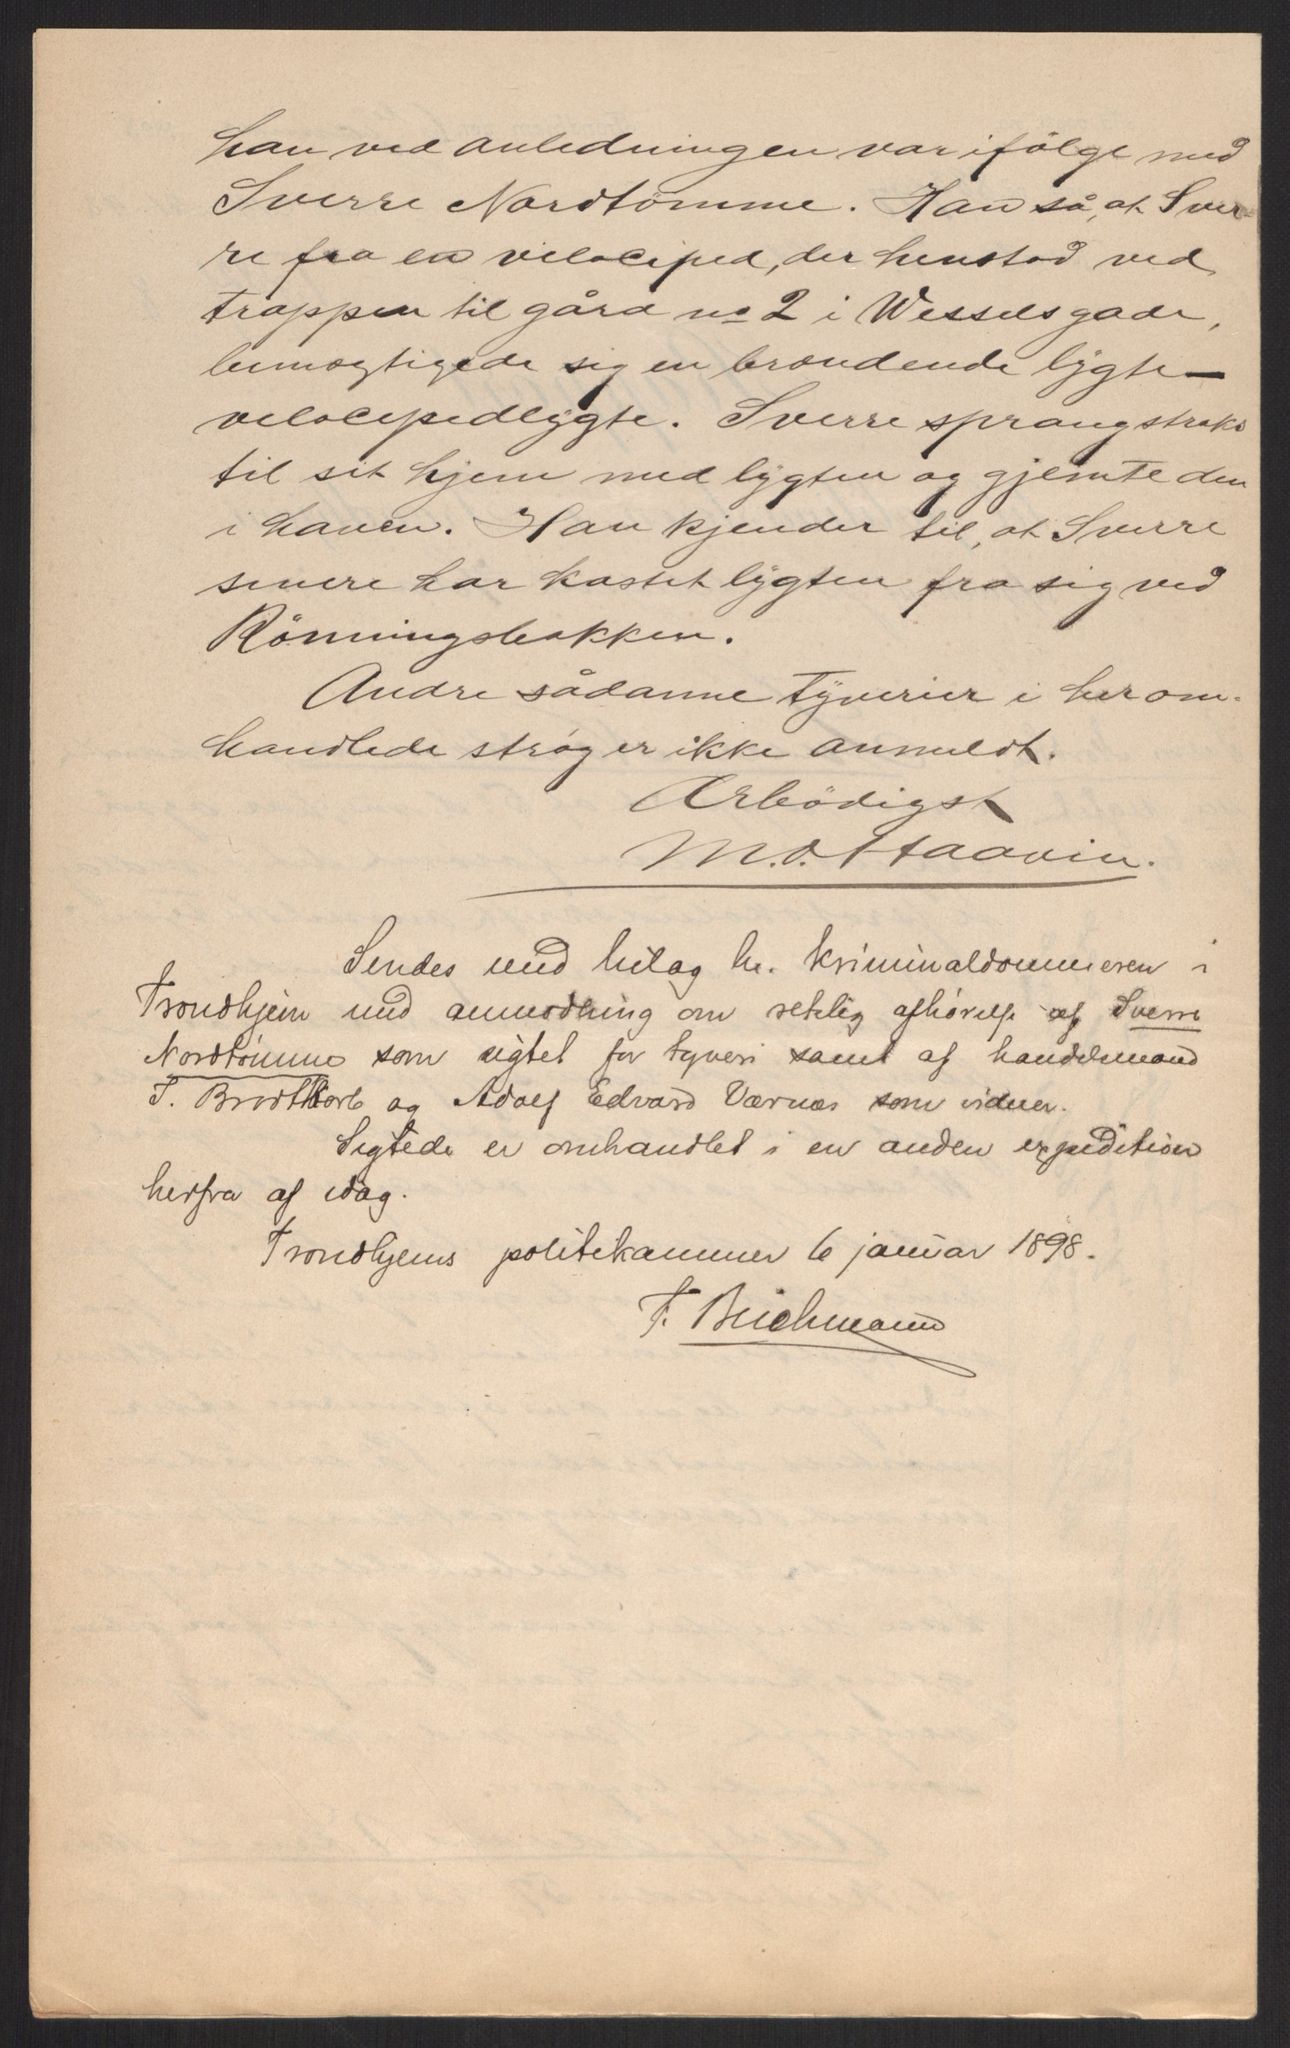 han ved anledningen var ifölge med
Sverre Nordtömme. Han så, at Sver-
re fra en velociped, der henstod ved
trappen til gård no 2 i Wesselsgade,
bemægtigede sig en brændende lÿgte –
velocipedlÿgte. Sverre sprang straks
til sit hjem med lÿgten og gjemte den
i haven. Han kjender til, at Sverre
senere har kastet lÿgten fra sig ved
Rönningsbakken.
Andre sådanne tÿverier i herom-
handlede strøg er ikke anmeldt.
Ærbödigst
M. O. Haavin.
Sendes med bilag hr. kriminaldommeren i
Trondhjem med anmodning om retslig afhørelse af Sverre
Nordtømme som sigtet for tyveri samt af handelsmand
F. Brodtkorb og Adolf Edvard Værnæs som vidner.
Sigtede er omhandlet i en anden expedition
herfra af idag.
Trondhjems politikammer 6 januar 1898.
F. Buchmann